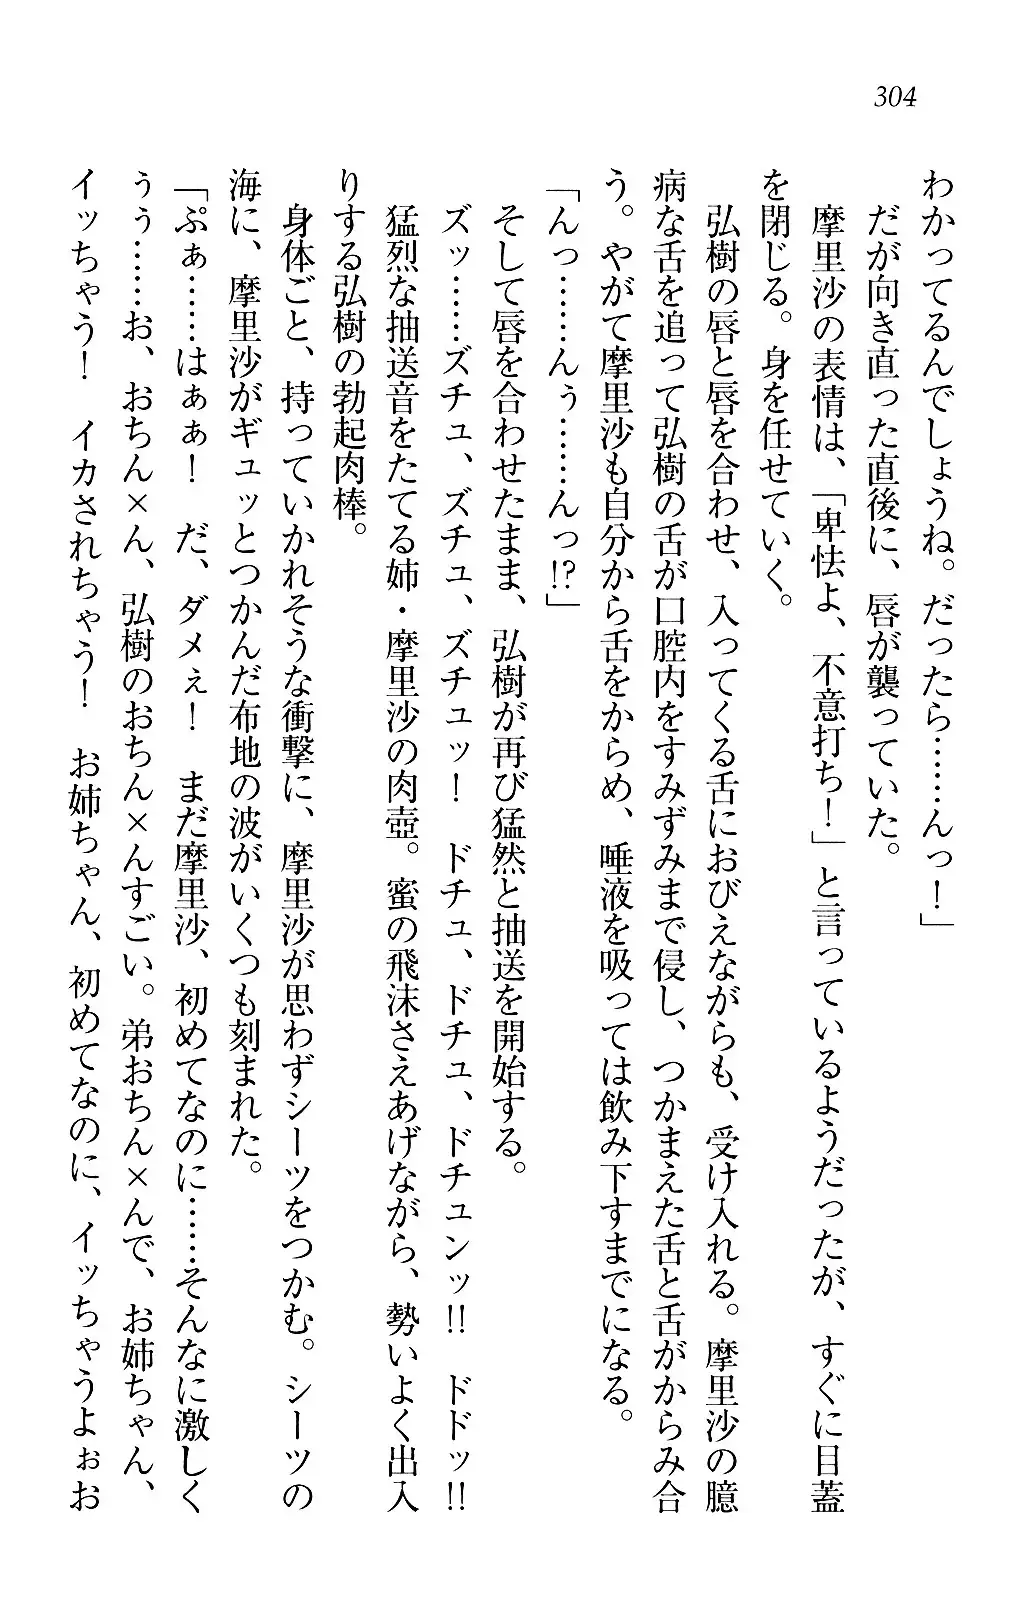 304
わかってるんでしょうね。だったら……んっ！」
だが向き直った直後に、唇が襲っていた。
摩里沙の表情は、「卑怯よ、不意打ち！」と言っているようだったが、すぐに目蓋
を閉じる。身を任せていく。
弘樹の唇と唇を合わせ、入ってくる舌におびえながらも、受け入れる。摩里沙の臆
病な舌を追って弘樹の舌が口腔内をすみずみまで侵し、つかまえた舌と舌がからみ合
う。やがて摩里沙も自分から舌をからめ、唾液を吸っては飲み下すまでになる。
「んっ……んぅ……んっ!?」
そして唇を合わせたまま、弘樹が再び猛然と抽送を開始する。
ズッ……ズチュ、ズチュ、ズチュッ！　ドチュ、ドチュ、ドチュンッ!!　ドドッ!!
猛烈な抽送音をたてる姉・摩里沙の肉壺。蜜の飛沫さえあげながら、勢いよく出入
りする弘樹の勃起肉棒。
身体ごと、持っていかれそうな衝撃に、摩里沙が思わずシーツをつかむ。シーツの
海に、摩里沙がギュッとつかんだ布地の波がいくつも刻まれた。
「ぷぁ……はぁぁ！　だ、ダメぇ！　まだ摩里沙、初めてなのに……そんなに激しく
ぅぅ……お、おちん×ん、弘樹のおちん×んすごい。弟おちん×んで、お姉ちゃん、
イッちゃう！　イカされちゃう！　お姉ちゃん、初めてなのに、イッちゃうよぉお